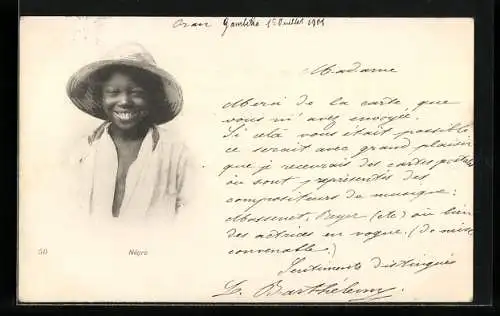 Oran Gambetta 1er Juillet 1901
Madame
Merci de la carte, que
vous m'avez envoyée.
Si celà vous était possible
ce serait avec grand plaisir
que je recevrais des cartes postales
où sont représentés des
compositeurs de musique:
Massenet, Reyer (etc) ou bien
des actrices en vogue. (de mise
convenable.)
Sentiments distingués
L. Barthélemy
50
Nègre